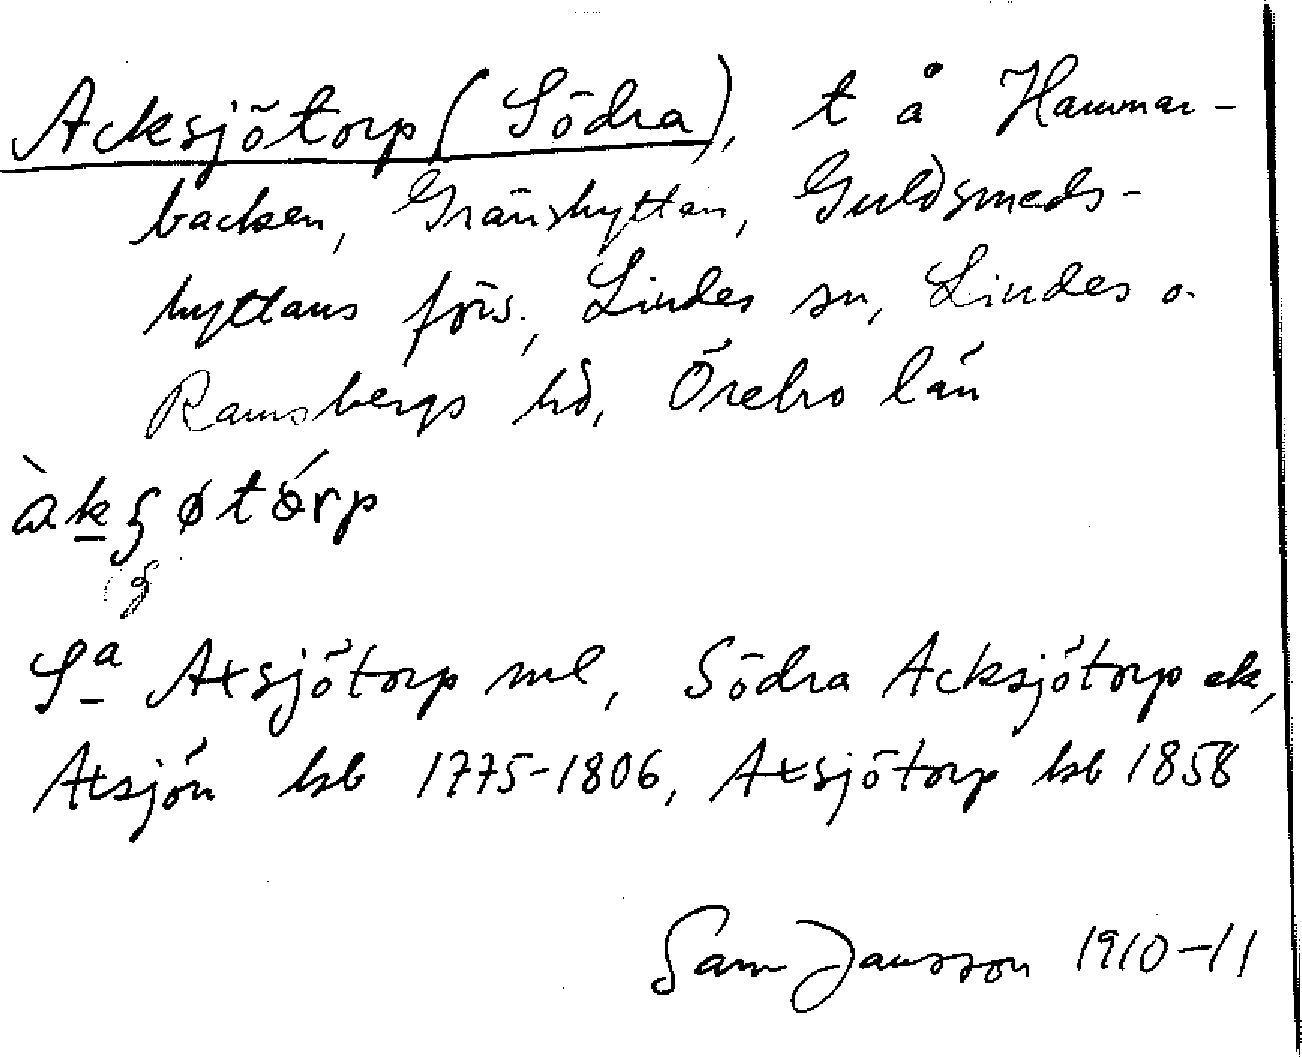 Acksjötorp (Södra), t å Hammar-
backen, Gränshyttan, Guldsmeds-
hyttans förs., Lindes sn, Lindes o.
Ramsbergs hd, Örebro län
àkʂøtórp
ʂ
Sª Axsjötorp ml, Södra Acksjötorp ek,
Axsjön kb 1775-1806, Axsjötorp kb 1858
Sam Jansson 1910-11